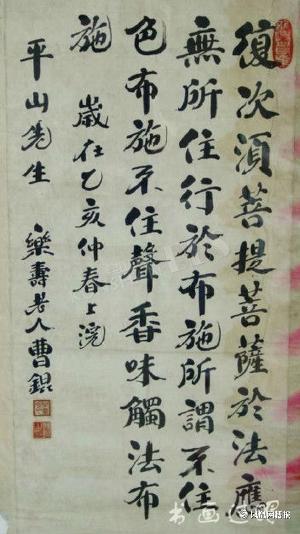 復次須菩提菩薩於法應
無所住行於布施所謂不住
色布施不住聲香味觸法布
施
歲在乙亥仲春上浣
平山先生
樂壽老人曹錕